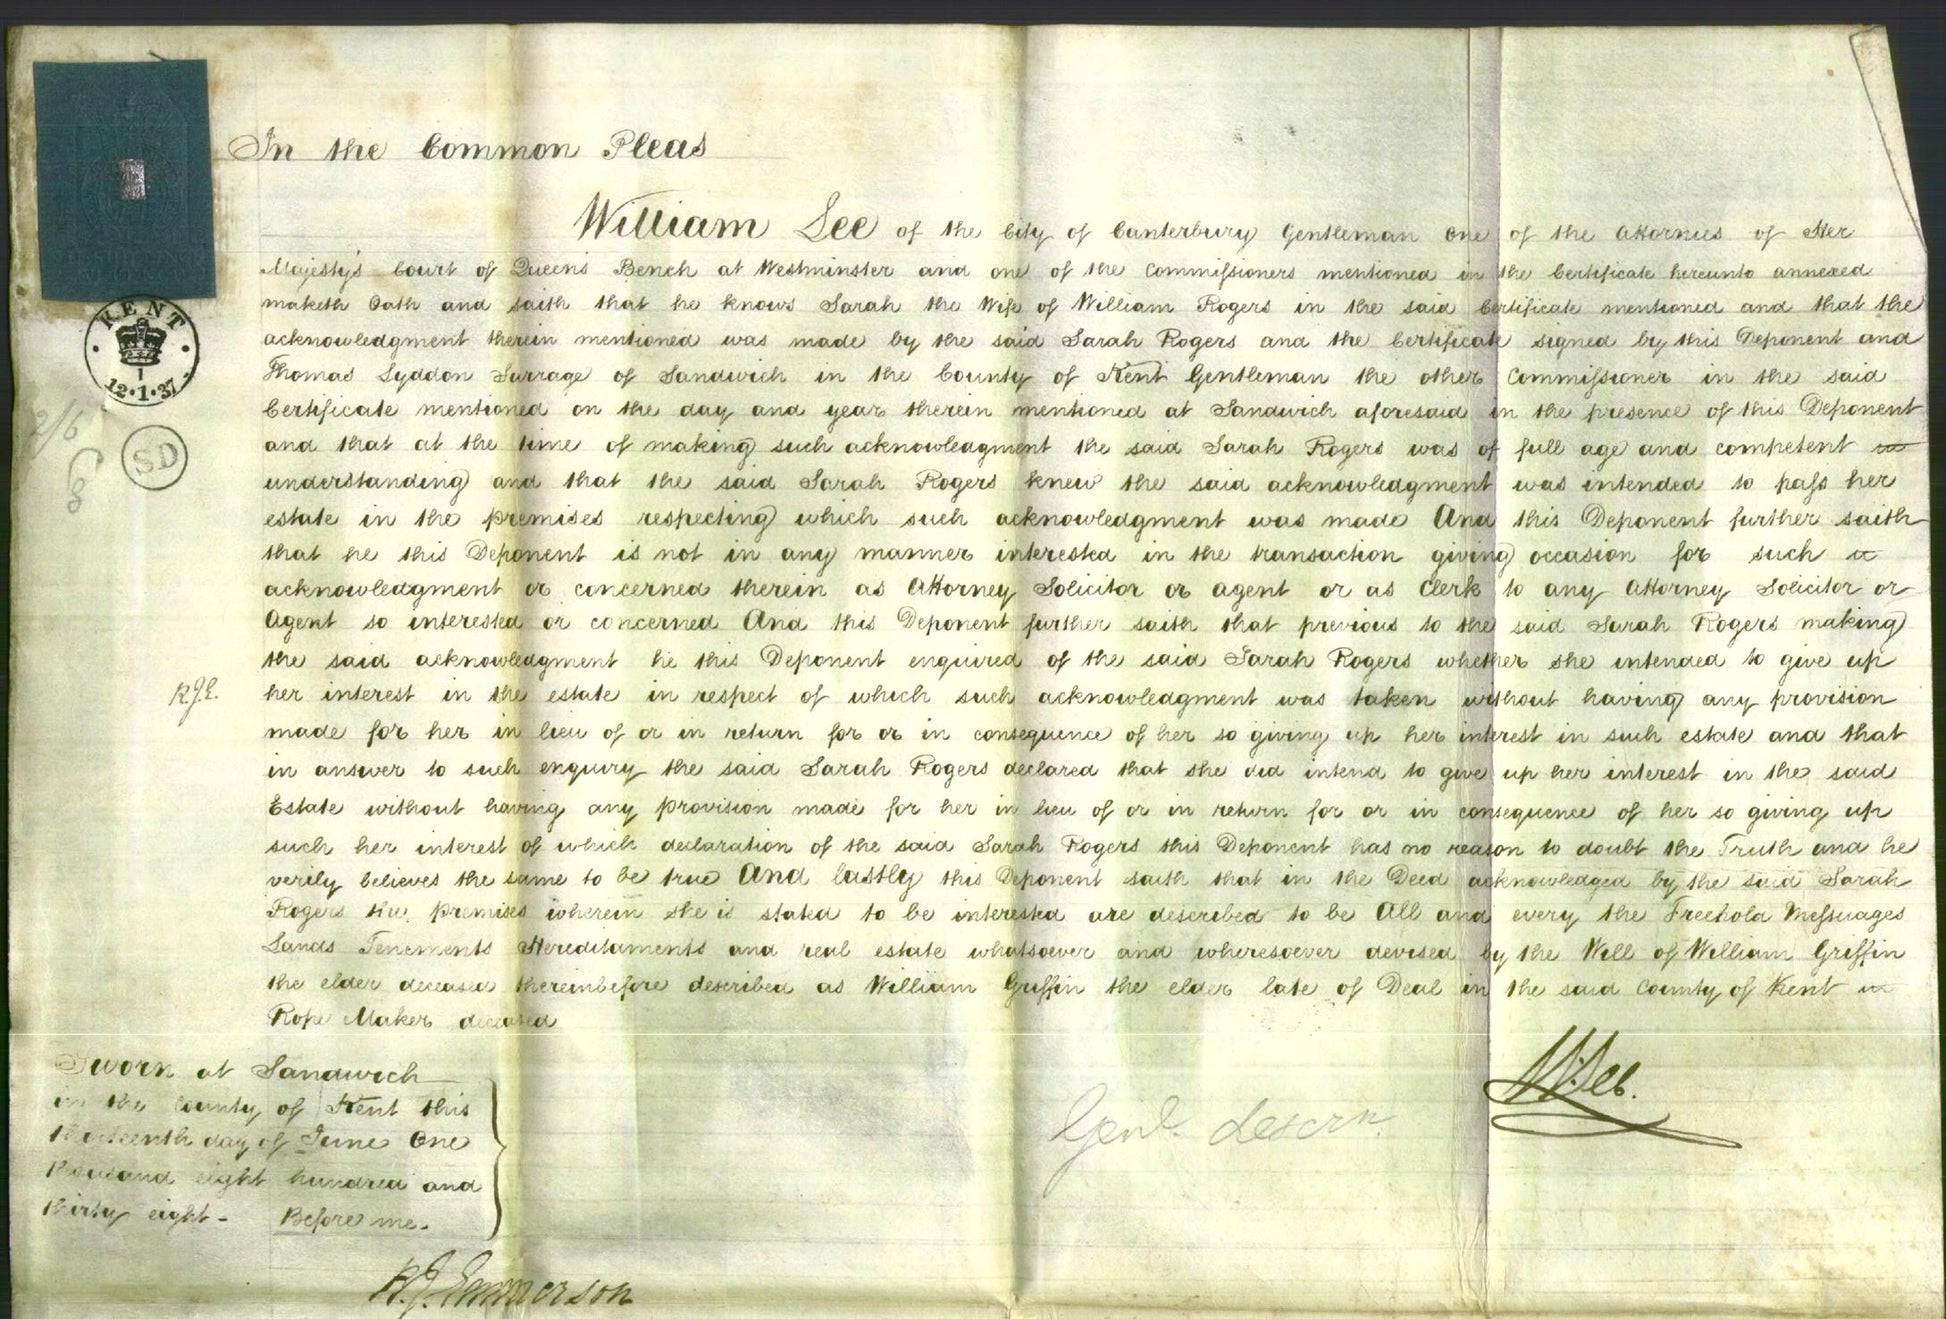 In the Common Pleas
William Lee of the City of Canterbury Gentleman one of the Attornies of Her
Majesty's Court of Queens Bench at Westminster and one of the Commissioners mentioned in the Certificate hereunto annexed
maketh Oath and saith that he knows Sarah the Wife of William Rogers in the said Certificate mentioned and that the
acknowledgment therein mentioned was made by the said Sarah Rogers and the Certificate signed by this Deponent and
Thomas Lyddon Surrage of Sandwich in the County of Kent Gentleman the other Commissioner in the said
Certificate mentioned on the day and year therein mentioned at Sandwich aforesaid in the presence of this Deponent
and that at the time of making such acknowledgment the said Sarah Rogers was of full age and competent
understanding and that the said Sarah Rogers knew the said acknowledgment was intended to pass her
estate in the premises respecting which such acknowledgment was made And this Deponent further saith
that he this Deponent is not in any manner interested in the transaction giving occasion for such
acknowledgment or concerned therein as Attorney Solicitor or agent or as Clerk to any Attorney Solicitor or
Agent so interested or concerned And this Deponent further saith that previous to the said Sarah Rogers making
the said acknowledgment he this Deponent enquired of the said Sarah Rogers whether she intended to give up
her interest in the estate in respect of which such acknowledgment was taken without having any provision
made for her in lieu of or in return for or in consequence of her so giving up her interest in such estate and that
in answer to such enquiry the said Sarah Rogers declared that she did intend to give up her interest in the said
Estate without having any provision made for her in lieu of or in return for or in consequence of her so giving up
such her interest of which declaration of the said Sarah Rogers this Deponent has no reason to doubt the Truth and he
verily believes the same to be true And lastly this Deponent saith that in the Deed acknowledged by the said Sarah
Rogers the premises wherein she is stated to be interested are described to be All and every the Freehold Messuages
Lands Tenements Hereditaments and real estate whatsoever and wheresoever devised by the Will of William Griffin
the elder deceased thereinbefore described as William Griffin the elder late of Deal in the said County of Kent
Rope Maker deceased
KENT
1
12.1.37
2/6
SD
R.J.E.
Sworn at Sandwich
in the County of Kent this
thirteenth day of June One
thousand eight hundred and
thirty eight - Before me.
R.J. Emmerson
W. Lee.
Genl. descrn.